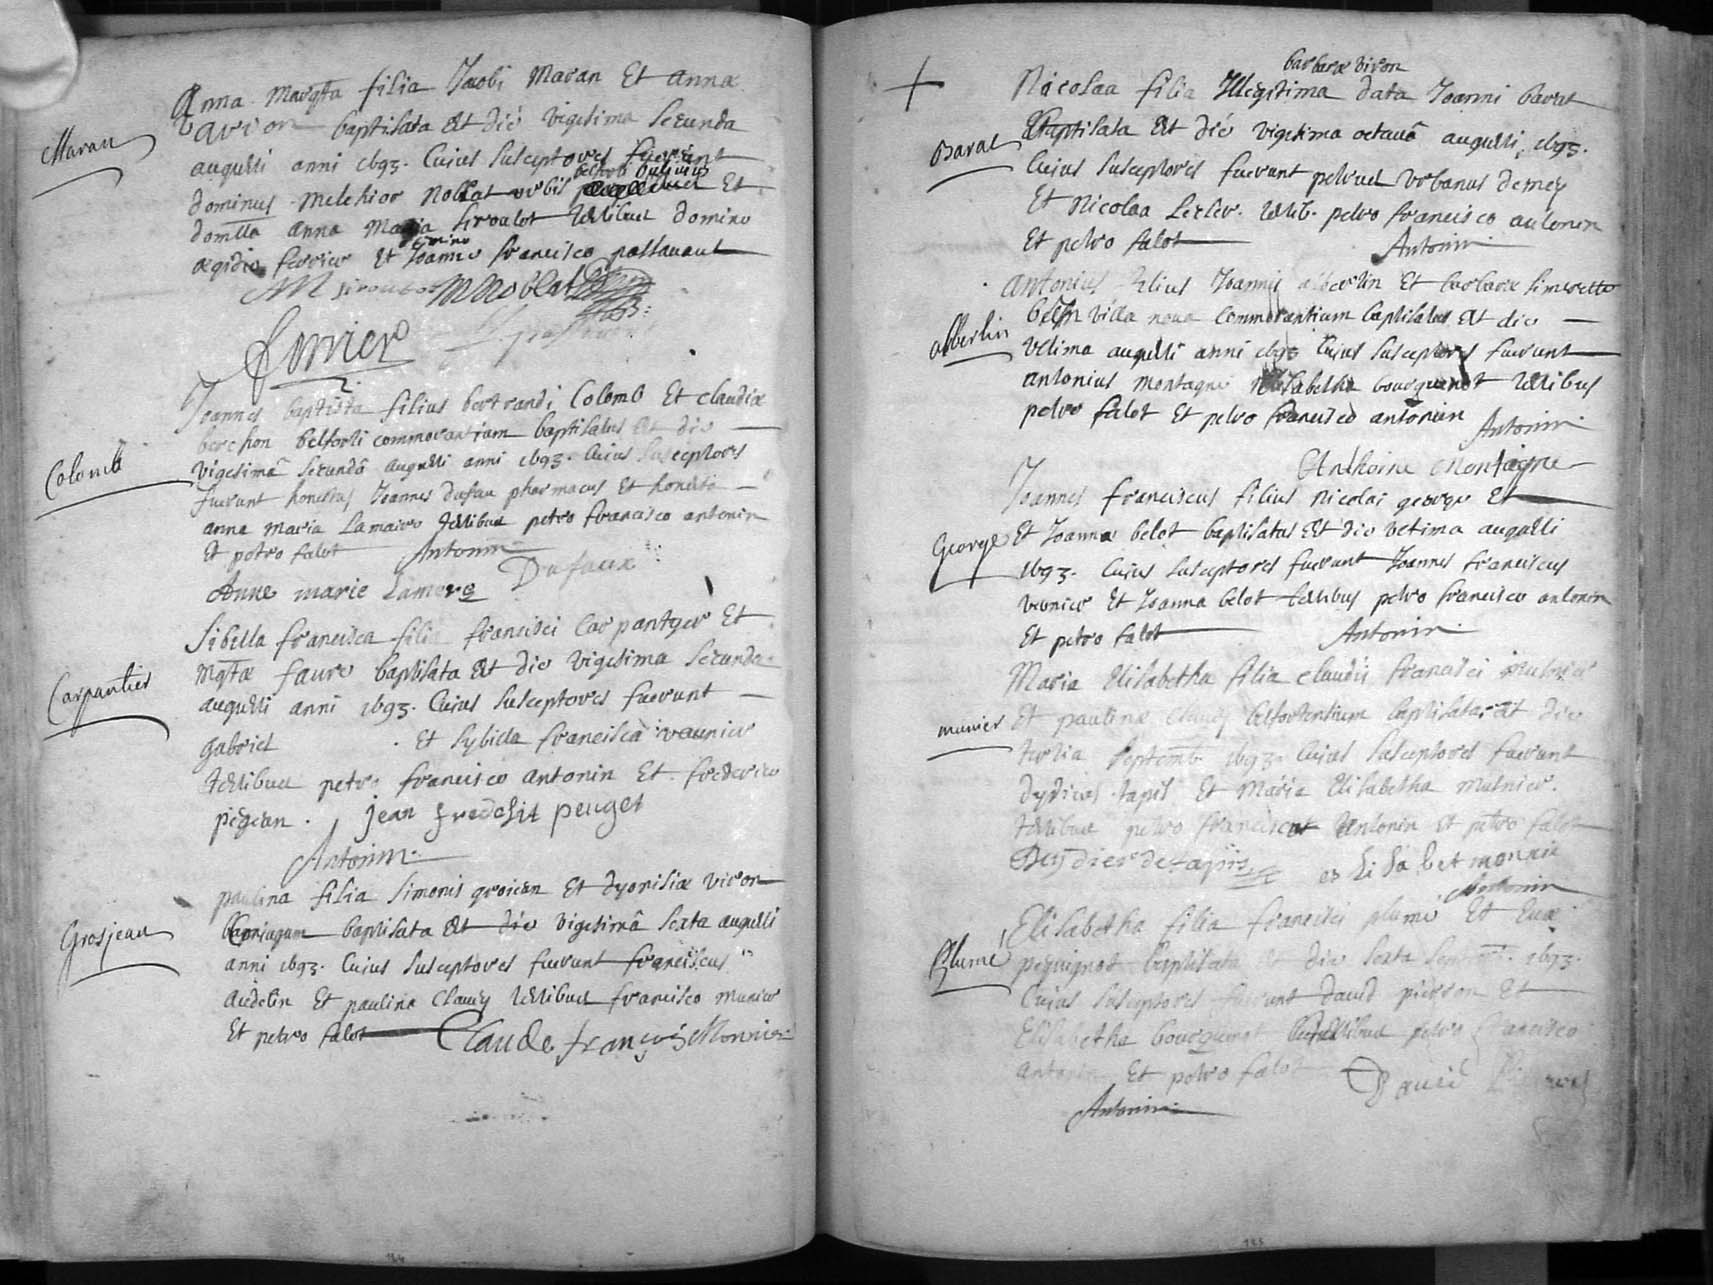 Maran
Anna Margta filia Jacobi Maran Et Annæ
Varion baptisata Est die vigesima secunda
augusti anni 1693. Cuius susceptores fuerunt
belforti
dominus Melchior Noblat urbis Et
domlla anna Maria siroulot testibus domino
domino
ægidio ferrier Et Joanne francisco passavant
MNoblat
ferrier
Colomb
Joannes baptista filius bertrandi Colomb Et claudiæ
berchon belforti commorantium baptisatus Est die
vigesimâ secundâ augusti anni 1693. Cuius susceptores
fuerunt honestus Joannes dufau pharmacus Et honesta
anna maria Lamaire testibus petro francisco antonin
Et petro falot Antonin
Anne marie Lamere Dufaux
Carpantier
Sibilla francisca filia francisci Carpantyer Et
Mgtæ faure baptisata Est die vigesima secunda
augusti anni 1693. Cuius susceptores fuerunt
gabriel . Et sybilla francisca
testibus petro francisco antonin Et frederico
pigean. jean frederit peuget
Antonin
Grosjean
paulina filia simonis groiean Et dyonisiæ viron
Conjugum baptisata Est die vigesimâ sexta augusti
anni 1693. Cuius susceptores fuerunt franciscus
Aidelin Et paulina Clavey testibus francisco munier
Et petro falot Claude françois Monnier
194
+
barbaræ viron
Nicolaa filia Illegitima data Joanni barat
Barat
baptisata Est die vigesima octavâ augusti, 1693.
Cuius susceptores fuerunt petrus Urbanus demey
Et Nicolaa Lecler. testib. petro francisco antonin
Et petro falot Antonin
antonius filius Joannis alberlin Et barbaræ simerette
Alberlin
villa nova commorantium baptisatus Est die
vetima augusti anni 1693 Cuius susceptores fuerunt
antonius montagne Elisabetha bourquenot testibus
petro falot Et petro francisco antonin Antonin
Anthoine Montagne
Joannes franciscus filius Nicolai george Et
George
Et Joanna belot baptisatus Est die vetima augusti
1693. Cuius susceptores fuerunt Joannes franciscus
vernier Et Joanna belot testibus petro francisco antonin
Et petro falot Antonin
Maria Elisabetha filia claudii francisci mulnier
munier
Et paulinæ Clavey belfortensium baptisata Est die
tertia septemb. 1693. Cuius susceptores fuerunt
dydier tapis Et Maria Elisabetha mulnier.
testibus petro francisco Antonin Et petro falot
es li sa bet monnie
Antonin
Elisabetha filia francisci plumé Et Evæ
Plumé
pequignot baptisata Est die sexta 1693.
Cuius susceptores fuerunt david pierron Et
Elisabetha bourquenot testibus petro francisco
antonin Et petro falot David
Antonin
195